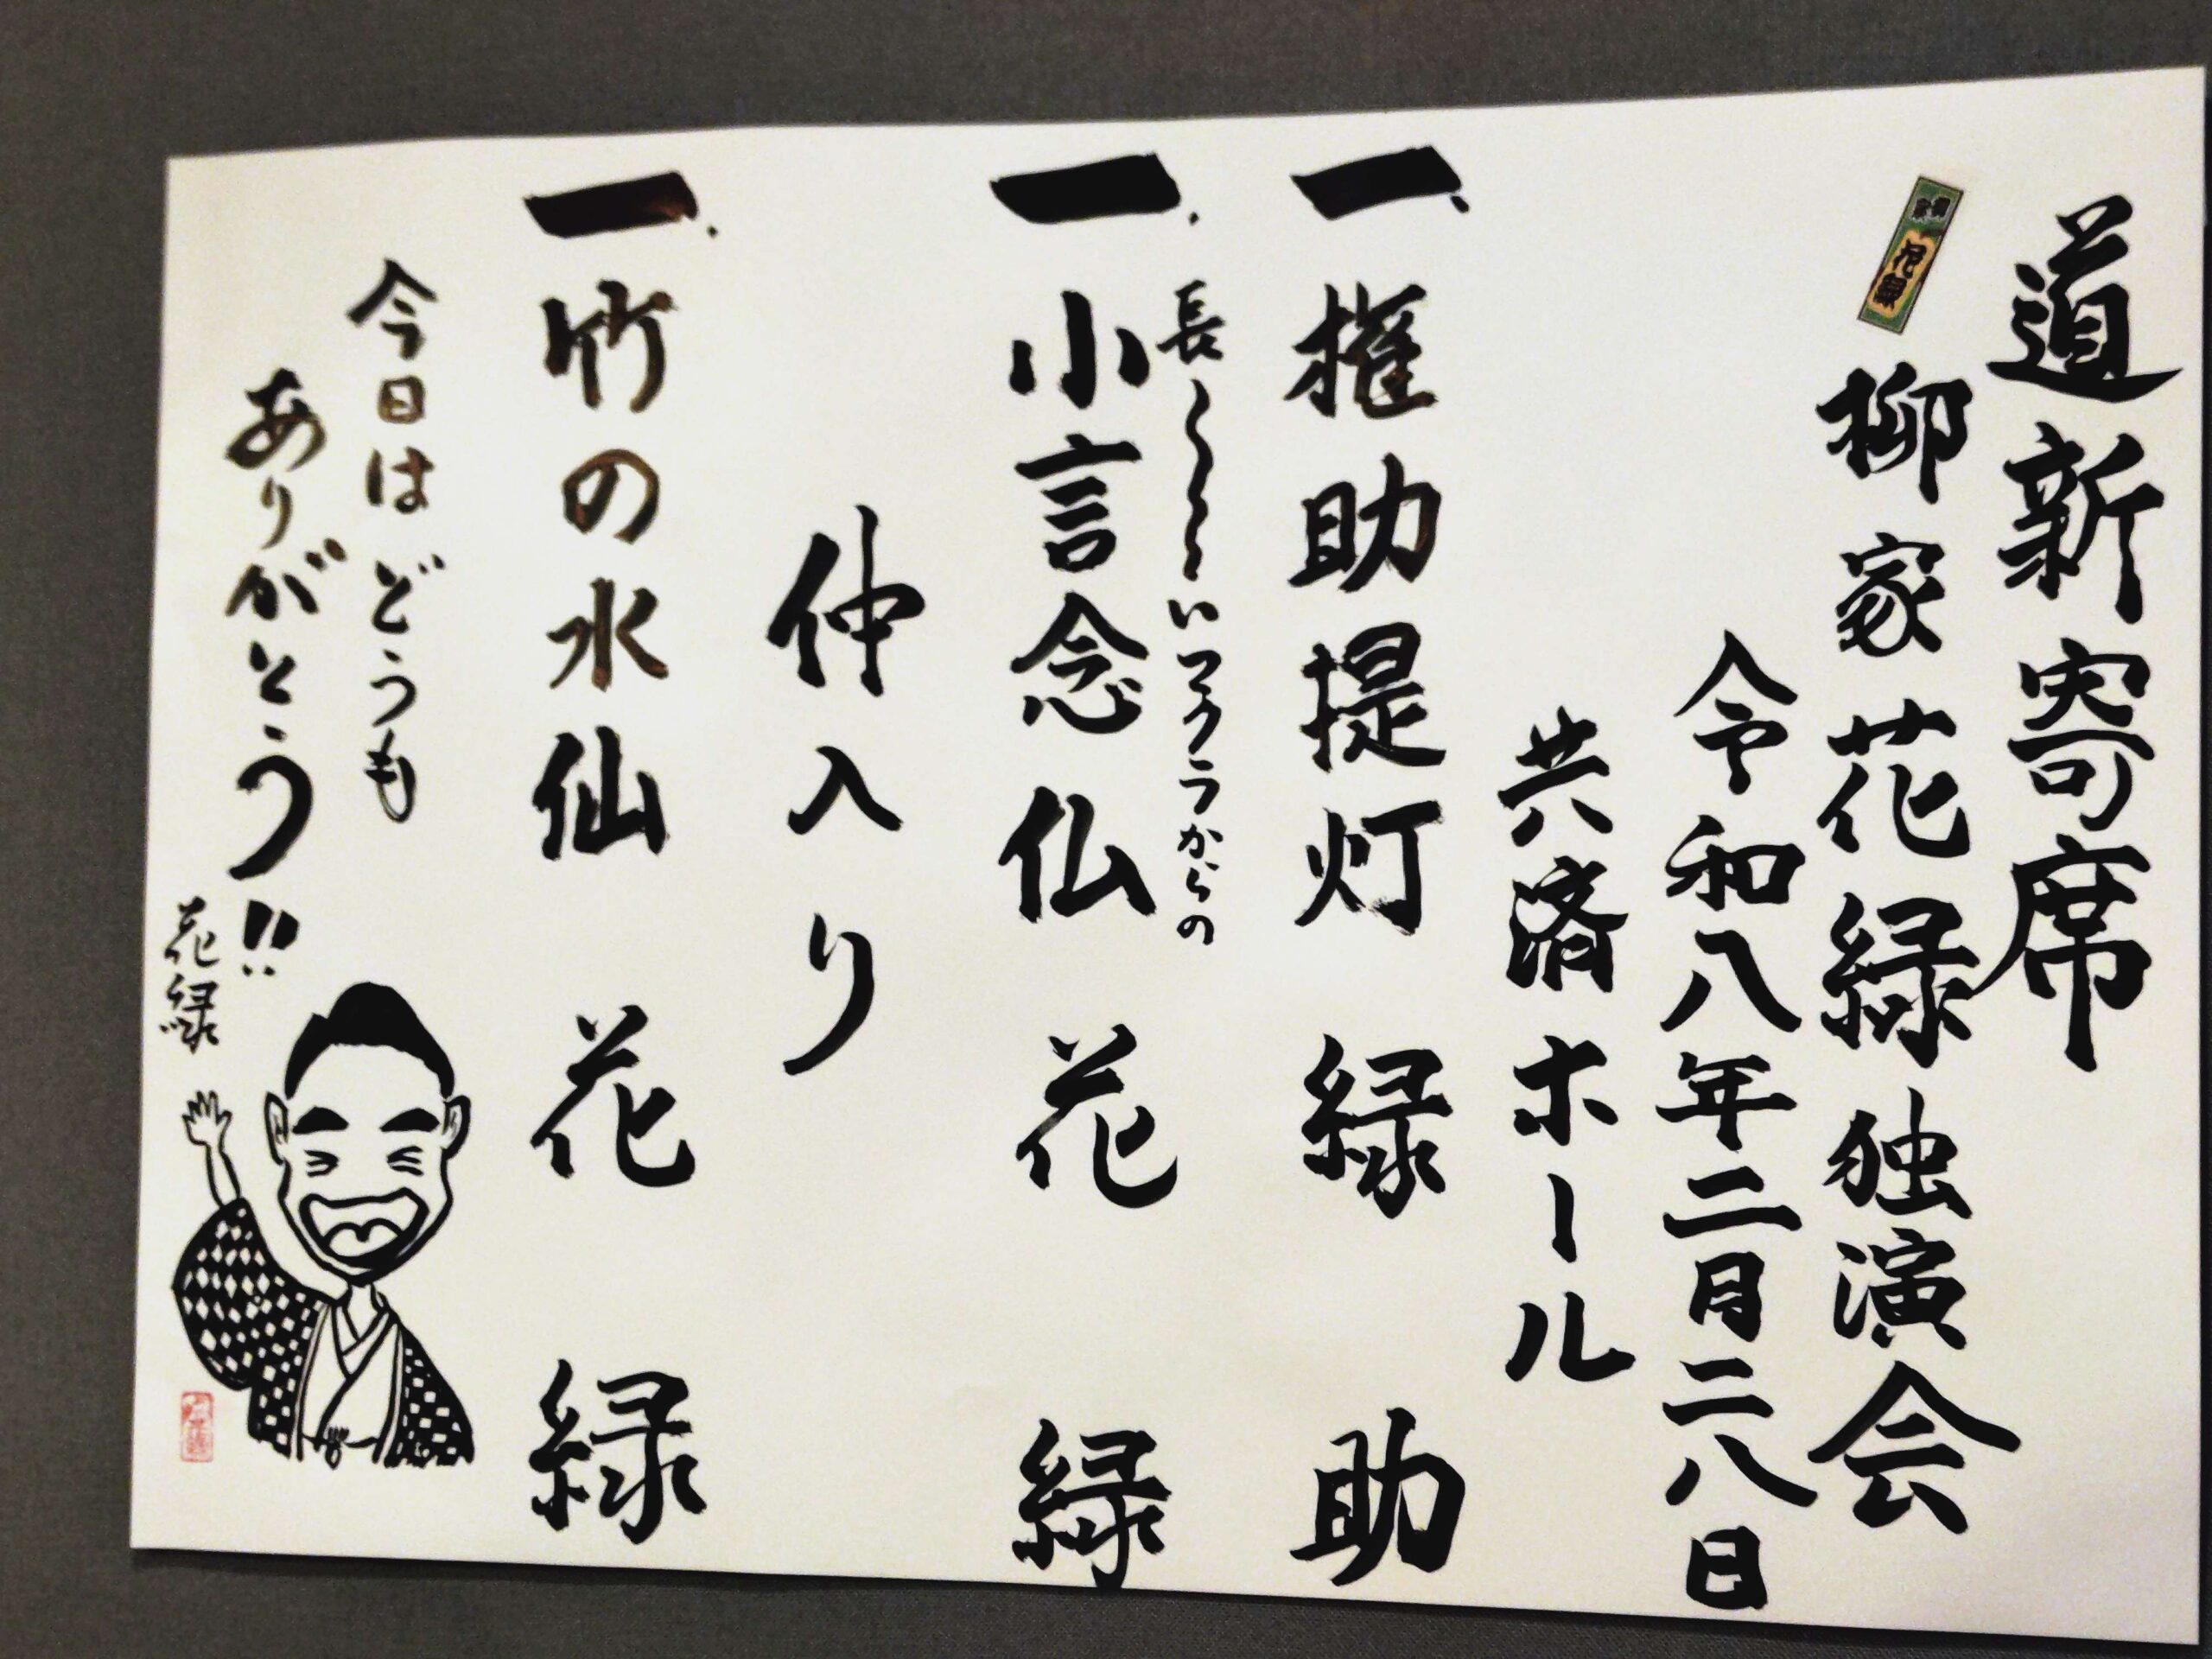 道新寄席
柳家花緑独演会
令和八年二月二八日
共済ホール
一、権助提灯 緑助
長〜〜〜〜いマクラからの
一、小言念仏 花緑
仲入り
一、竹の水仙 花緑
今日はどうも
ありがとう!!
花緑